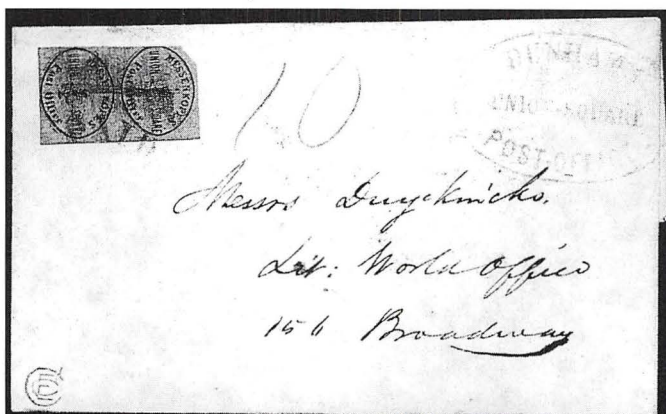 MESSENKOPE'S
UNION SQUARE
Post Office
MESSENKOPE'S
UNION SQUARE
Post Office
10
DUNHAM'S
UNION-SQUARE
POST-OFF
Messrs Duyckincks.
Lit: World Office
156 Broadway